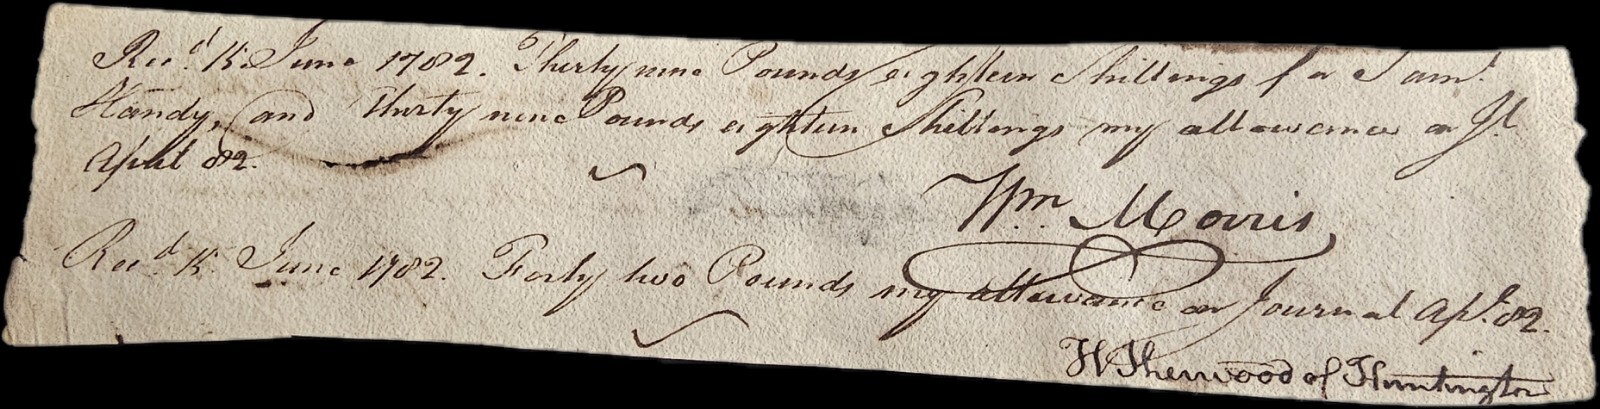 Recd. 15. June 1782. Thirty nine Pounds eighteen Shillings for Saml.
Handy, and Thirty nine Pounds eighteen Shillings my allowance on Jl.
April 82.
Wm. Morris
Recd. 15. June 1782. Forty two Pounds my allowance on Journal Apl. 82.
Sherwood of Huntington